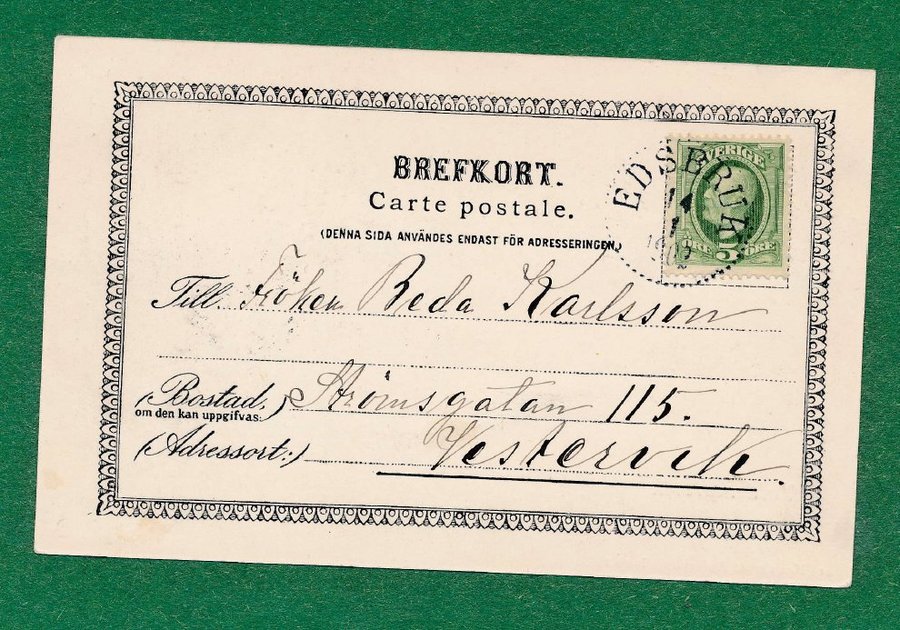 BREFKORT.
Carte postale.
(DENNA SIDA ANVÄNDES ENDAST FÖR ADRESSERINGEN.)
SVERIGE
5 ÖRE
EDSBRUK
14
1
1902
Till Fröken Beda Karlsson
(Bostad, ) Strömsgatan 115.
om den kan uppgifvas:
(Adressort:) Vestervik.